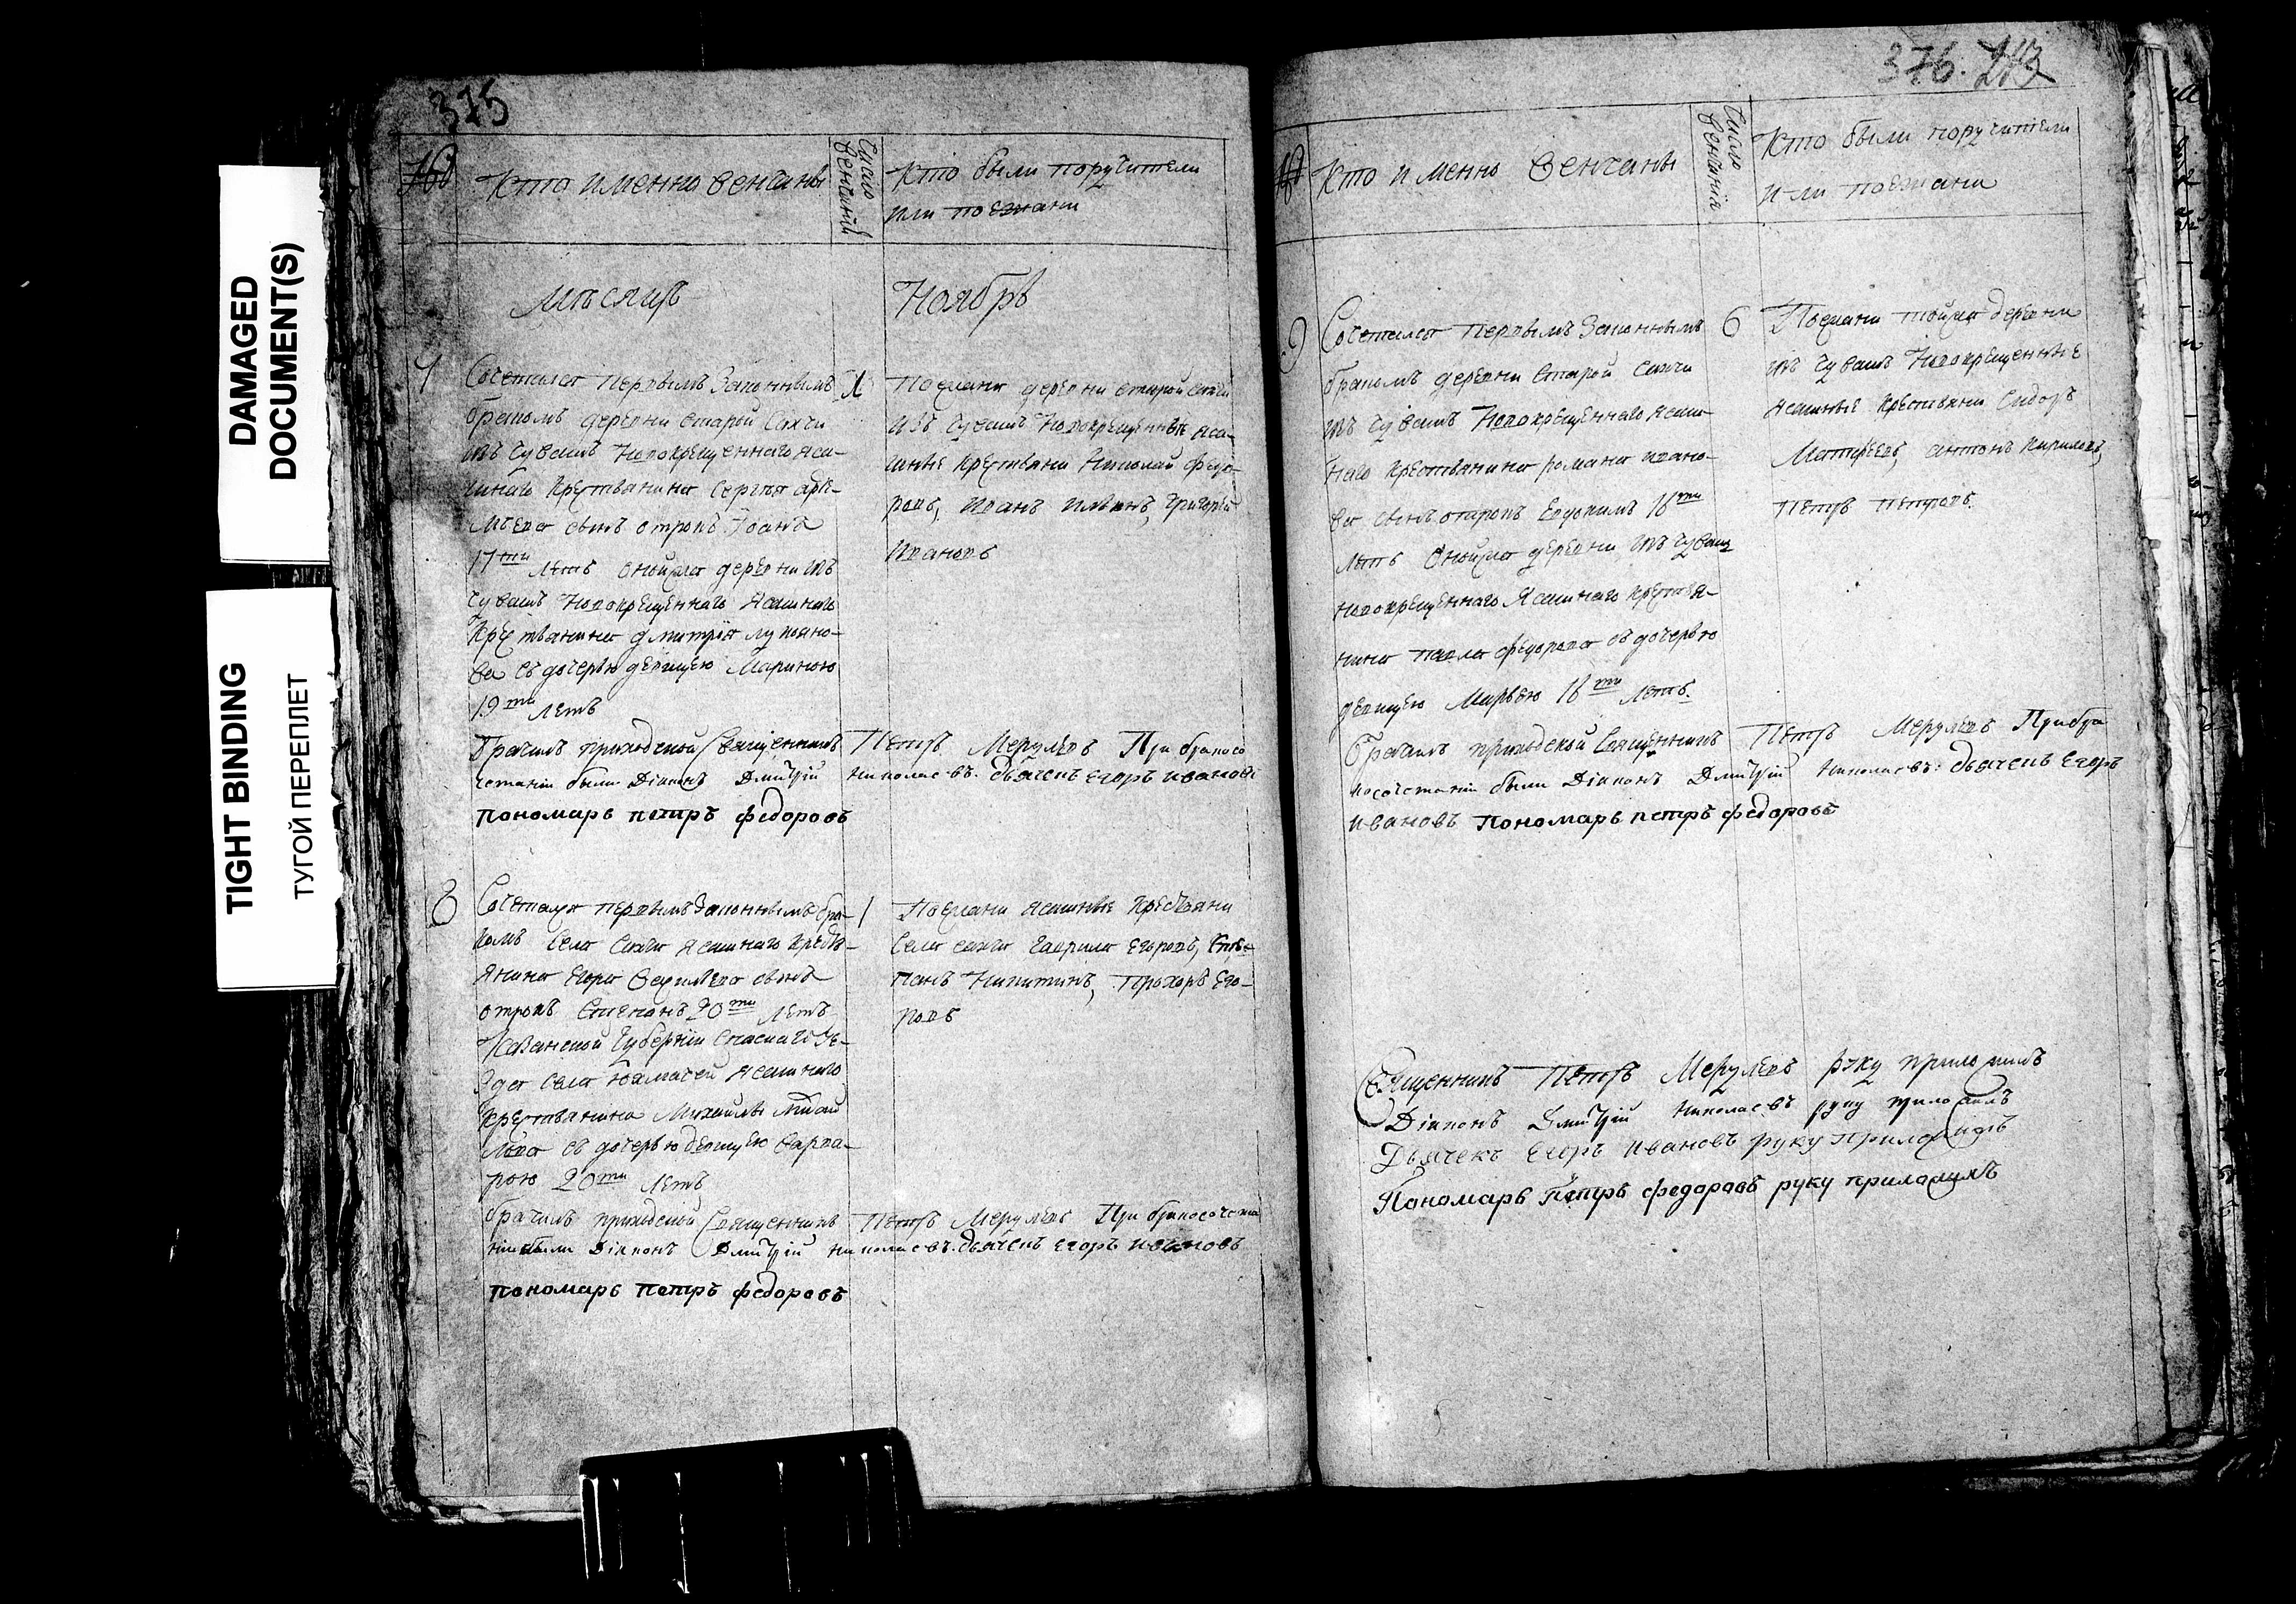 DAMAGED
DOCUMENT(S)
TIGHT BINDING
ТУГОЙ ПЕРЕПЛЕТ
375
Кто именно венчаны
Число венчаний
Кто были поручители
или поезжани
Мѣсяцъ
Ноябрь
7
Сочетался первымъ Законнымъ
бракомъ деревни старой Сахчи
изъ Чувашъ Новокрещеннаго яса-
шнаго крестьянина Сергѣя
сынъ отрокъ Іоаннъ
17ти летъ оной же деревни изъ
чувашъ Новокрещеннаго Ясашнаго
Крестьянина Дмитрія лукояно-
ва съ дочерью девицею Мариною
19ти летъ
Поезжана деревни старой сахчи
изъ Чувашъ Новокрещенные яса-
шные крестьяни Николай федо-
ровъ, Иванъ Григорій
Ивановъ
Брачилъ приходской Священникъ Петръ Мерулевъ При бракосо
четаніи были Діаконъ Дмитрій Николаевъ. дьячекъ Егоръ Ивановъ
пономарь петръ федоровъ
8
Сочетался первымъ Законнымъ бра-
комъ Села Сахчи Ясашнаго кресть-
янина Егора сынъ
отрокъ Степанъ 20ти летъ
Казанской Губерніи Спаскаго Уе-
зда села Ясашнаго
крестьянина Михайлы
съ дочерью девицею Варва-
рою 20ти летъ
1
Поезжани Ясашные Крестьяни
Села сахчи Гаврила Егоровъ, Сте-
панъ Никитинъ, Прохоръ Его-
ровъ
брачилъ приходской Священникъ Петръ Мерулевъ При бракосочета
ніи были Діаконъ Дмитрій Николаевъ. дьячекъ Егоръ Ивановъ
пономарь петръ федоровъ
376. 213
Кто именно Венчаны
Число венчаніе
Кто были поручители
или поезжани
9
Сочетался первымъ Законнымъ
бракомъ деревни Старой Сахчи
изъ Чувашъ Новокрещеннаго Ясаш-
наго крестьянина романа ивано-
ва сынъ отрокъ Евдокимъ 18ти
летъ Оной же деревни, изъ Чувашъ
новокрещеннаго Ясашнаго крестья-
нина павла федорова съ дочерью
девицею Марьею 18ти летъ
6
Поезжани той же деревни
изъ Чувашъ Новокрещенные
Ясашные крестьяни Сидоръ
Матфеевъ, антонъ кириловъ,
Петръ петровъ.
брачилъ приходской Священникъ Петръ Мерулевъ При бра
косочетаніи были Діаконъ Дмитрій Николаевъ: дьячекъ Егоръ
Ивановъ Пономарь петръ федоровъ
Священникъ Петръ Мерулевъ руку приложилъ
Діаконъ Дмитрій Николаевъ руку приложилъ
Дьячекъ Егоръ Ивановъ руку приложилъ
Пономарь Петръ федоровъ руку приложилъ